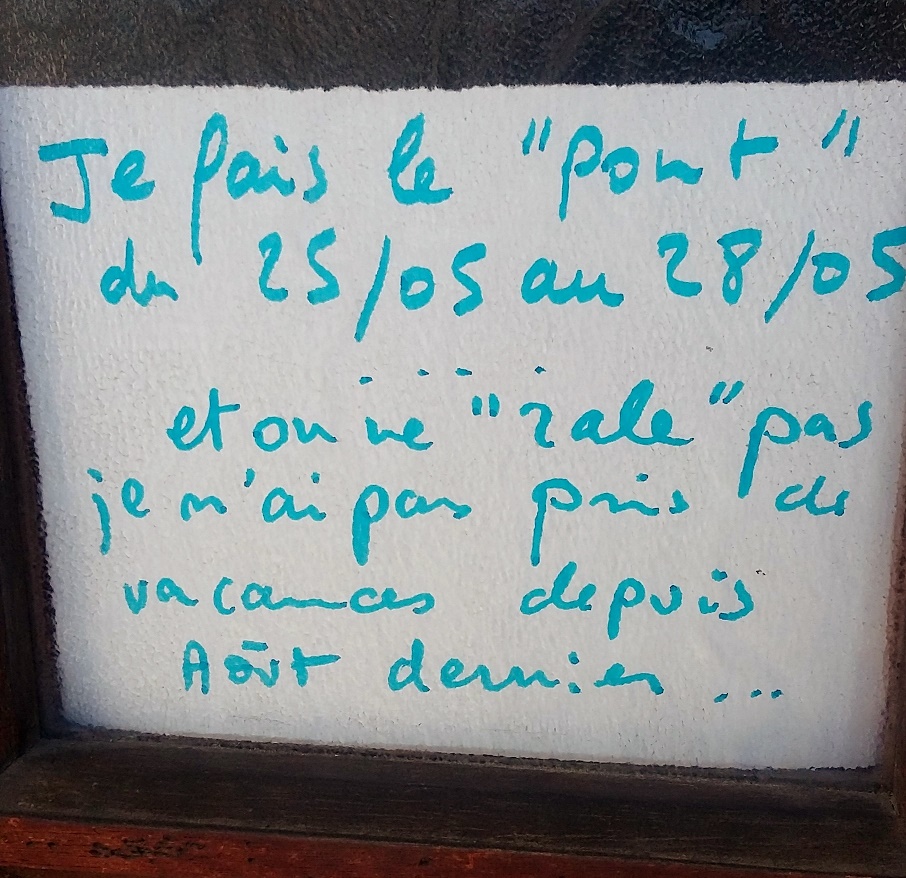 Je fais le "pont"
du 25/05 au 28/05
....
et on ne "rale" pas
je n'ai pas pris de
vacances depuis
Août dernier ...